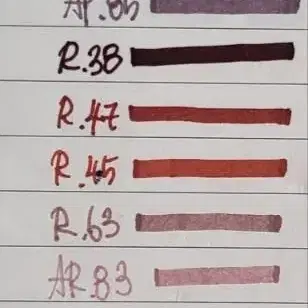 R.38
R.47
R.45
R.63
AR.83